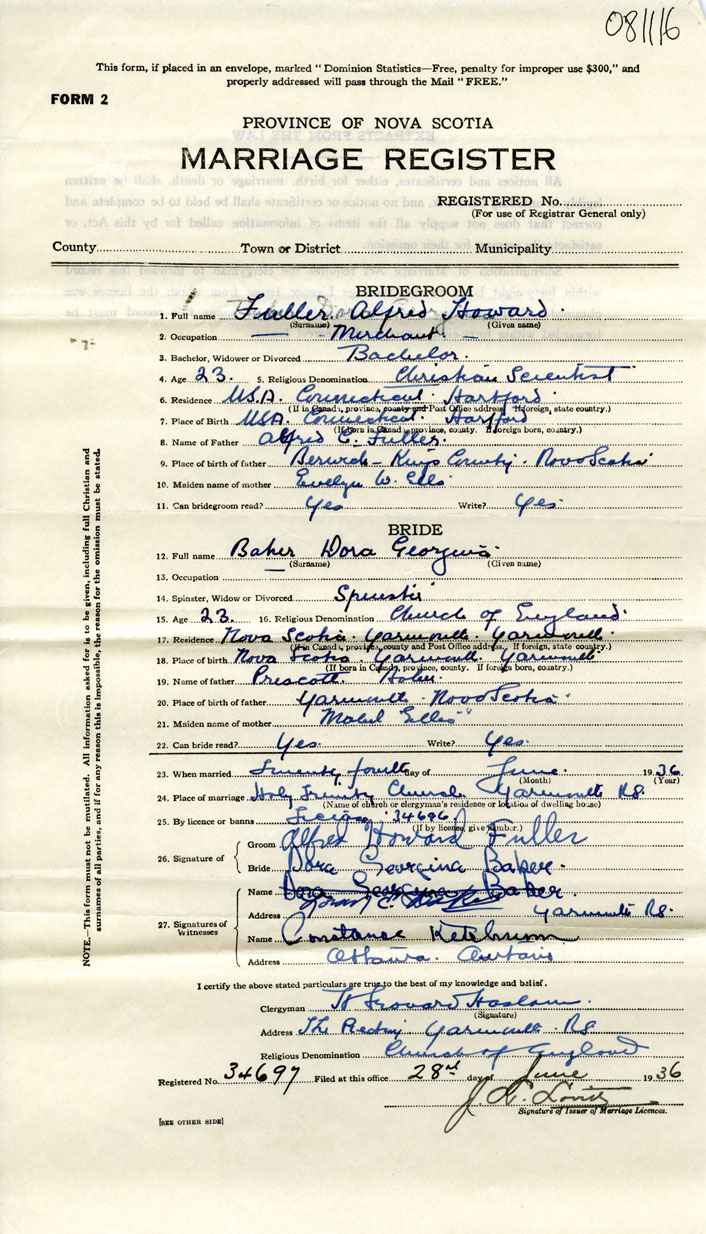 081116
This form, if placed in an envelope, marked "Dominion Statistics—Free, penalty for improper use $300," and
properly addressed will pass through the Mail "FREE."
FORM 2
PROVINCE OF NOVA SCOTIA
MARRIAGE REGISTER
REGISTERED No.
(For use of Registrar General only)
County Town or District Municipality
BRIDEGROOM
1. Full name Fuller Alfred Howard
(Surname) (Given name)
2. Occupation — Merchant —
3. Bachelor, Widower or Divorced Bachelor.
4. Age 23. 5. Religious Denomination Christian Scientist
6. Residence U.S.A. Connecticut. Hartford
(If in Canada, province, county and Post Office address. If foreign, state country.)
7. Place of Birth U.S.A. Connecticut. Hartford
(If born in Canada, province, county. If foreign born, country.)
8. Name of Father Alfred C. Fuller.
9. Place of birth of father Berwick – Kings County. Nova Scotia
10. Maiden name of mother Evelyn W. Ells
11. Can bridegroom read? Yes Write? Yes.
BRIDE
12. Full name Baker Dora Georgina
(Surname) (Given name)
13. Occupation —
14. Spinster, Widow or Divorced Spinster
15. Age 23. 16. Religious Denomination Church of England
17. Residence Nova Scotia. Yarmouth. Yarmouth.
(If in Canada, province, county and Post Office address. If foreign, state country.)
18. Place of birth Nova Scotia Yarmouth. Yarmouth
(If born in Canada, province, county. If foreign born, country.)
19. Name of father Prescott
20. Place of birth of father Yarmouth. Nova Scotia
21. Maiden name of mother Mabel Ellis
22. Can bride read? Yes. Write? Yes.
23. When married Twenty fourth day of June. 1936
(Month) (Year)
24. Place of marriage Holy Trinity Church Yarmouth N.S.
(Name of church or clergyman's residence or location of dwelling house)
25. By licence or banns License 34696
(If by licence, give number.)
26. Signature of Groom Alfred Howard Fuller
Bride Dora Georgina Baker.
27. Signatures of Witnesses
Name Dora Georgina Baker
Address Yarmouth N.S.
Name Constance Ketchum
Address Ottawa. Ontario
I certify the above stated particulars are true to the best of my knowledge and belief.
Clergyman Haslam.
(Signature)
Address The Rectory Yarmouth. N.S.
Religious Denomination Church of England
Registered No. 34697 Filed at this office 28rd day of June 1936
Signature of Issuer of Marriage Licences.
[SEE OTHER SIDE]
NOTE.—This form must not be mutilated. All information asked for is to be given, including full Christian and
surnames of all parties, and if for any reason this is impossible, the reason for the omission must be stated.